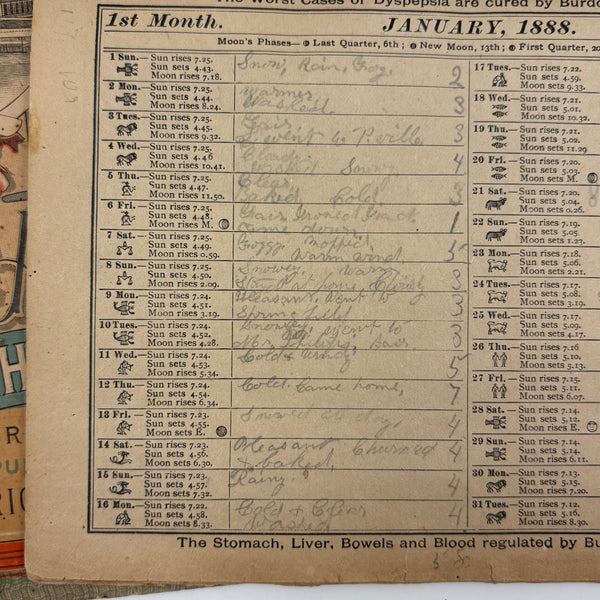 The Worst Cases of Dyspepsia are cured by Burdo
1st Month. JANUARY, 1888.
Moon's Phases— Last Quarter, 6th; New Moon, 13th; First Quarter, 20
1 Sun.—Sun rises 7.25.
Sun sets 4.43.
Moon rises 7.18.
Snow, Rain, Fog. 2
2 Mon.—Sun rises 7.25.
Sun sets 4.44.
Moon rises 8.24.
Warmer
Washed. 3
3 Tues.—Sun rises 7.25.
Sun sets 4.45.
Moon rises 9.32.
Fair
I went to P.ville 3
4 Wed.—Sun rises 7.25.
Sun sets 4.46
Moon rises 10.41.
Snow 4
5 Thu.—Sun rises 7.25.
Sun sets 4.47.
Moon rises 11.50.
Baked Cold 3
6 Fri.—Sun rises 7.25.
Sun sets 4.48.
Moon rises M.
Fair Ironed
down 1
7 Sat.—Sun rises 7.25.
Sun sets 4.49.
Moon rises 0.59.
Foggy Mopped
Warm wind 5
8 Sun.—Sun rises 7.25.
Sun sets 4.50.
Moon rises 2.09.
Snowey. Warm
Stay at home, 3
9 Mon.—Sun rises 7.24.
Sun sets 4.51.
Moon rises 3.19.
Pleasant, Went to
3
10 Tues.—Sun rises 7.24.
Sun sets 4.52.
Moon rises 4.28.
Went to
3
11 Wed.—Sun rises 7.24.
Sun sets 4.53.
Moon rises 5.34.
Cold & Windy 5
12 Thu.—Sun rises 7.24.
Sun sets 4.54.
Moon rises 6.34.
Cold. Came home, 7
13 Fri.—Sun rises 7.23.
Sun sets 4.55.
Moon sets E.
Snowed 4
14 Sat.—Sun rises 7.23.
Sun sets 4.56.
Moon sets 6.30.
Pleasant Churned
& baked, 4
15 Sun.—Sun rises 7.23.
Sun sets 4.57.
Moon sets 7.32.
Rainy 4
16 Mon.—Sun rises 7.22.
Sun sets 4.58.
Moon sets 8.33.
Cold & Clear
Washed 4
17 Tues.—Sun rises 7.22.
Sun sets 4.59.
Moon sets 9.33.
18 Wed.—Sun rises 7.21.
Sun sets 5.01.
Moon sets 10.32.
19 Thu.—Sun rises 7.21.
Sun sets 5.02.
Moon sets 11.29
20 Fri.—Sun rises 7.20.
Sun sets 5.03.
Moon sets M.
21 Sat.—Sun rises 7.20.
Sun sets 5.04.
Moon sets 0.26.
22 Sun.—Sun rises 7.19.
Sun sets 5.05
Moon sets 1.23.
23 Mon.—Sun rises 7.18.
Sun sets 5.06
Moon sets 2.21.
24 Tues.—Sun rises 7.17.
Sun sets 5.08.
Moon sets 3.19.
25 Wed.—Sun rises 7.17
Sun sets 5.09.
Moon sets 4.17.
26 Thu.—Sun rises 7.16
Sun sets 5.10.
Moon sets 5.13.
27 Fri.—Sun rises 7.15.
Sun sets 5.11.
Moon sets 6.07.
28 Sat.—Sun rises 7.14.
Sun sets 5.12.
Moon rises E.
29 Sun.—Sun rises 7.14.
Sun sets 5.14.
Moon rises 6.11.
30 Mon.—Sun rises 7.13.
Sun sets 5.15.
Moon rises 7.20.
31 Tues.—Sun rises 7.12.
Sun sets 5.16.
Moon rises 8.30.
The Stomach, Liver, Bowels and Blood regulated by Bu